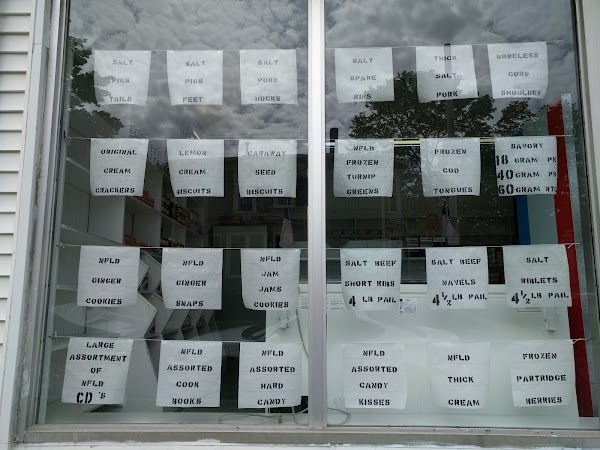 SALT
PIGS
TAILS
SALT
PIGS
FEET
SALT
PORK
HOCKS
SALT
SPARE
RIBS
THICK
SALT
PORK
BONELESS
CORN
SHOULDER
ORIGINAL
CREAM
CRACKERS
LEMON
CREAM
BISCUITS
CARAWAY
SEED
BISCUITS
NFLD
FROZEN
TURNIP
GREENS
FROZEN
COD
TONGUES
SAVORY
18 GRAM PK
40 GRAM PK
60 GRAM BTL
NFLD
GINGER
COOKIES
NFLD
GINGER
SNAPS
NFLD
JAM
JAMS
COOKIES
SALT BEEF
SHORT RIBS
4 LB PAIL
SALT BEEF
NAVELS
4 1/2 LB PAIL
SALT
RIBLETS
4 1/2 LB PAIL
LARGE
ASSORTMENT
OF
NFLD
CD'S
NFLD
ASSORTED
COOK
BOOKS
NFLD
ASSORTED
HARD
CANDY
NFLD
ASSORTED
CANDY
KISSES
NFLD
THICK
CREAM
FROZEN
PARTRIDGE
BERRIES